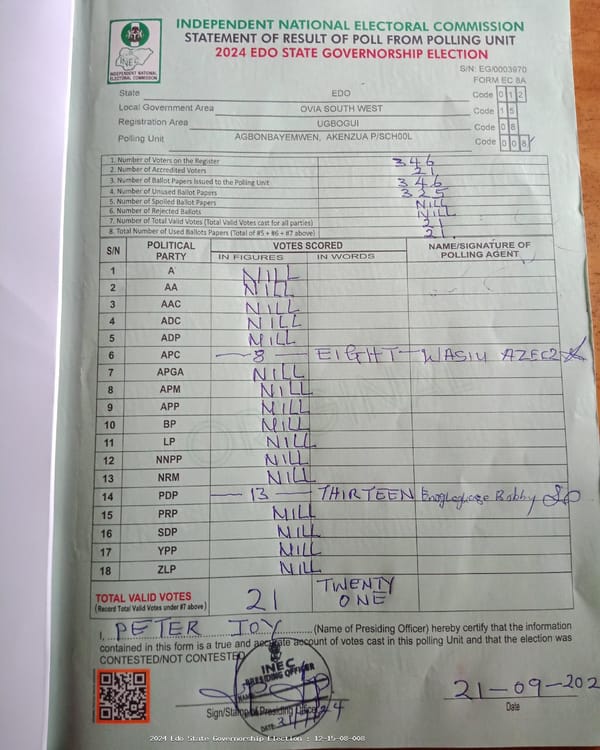 INDEPENDENT NATIONAL ELECTORAL COMMISSION
STATEMENT OF RESULT OF POLL FROM POLLING UNIT
2024 EDO STATE GOVERNORSHIP ELECTION
INEC
INDEPENDENT NATIONAL ELECTORAL COMMISSION
S/N: EG/0003970
FORM EC 8A
State EDO Code 0 1 2
Local Government Area OVIA SOUTH WEST Code 1 5
Registration Area UGBOGUI Code 0 8
Polling Unit AGBONBAYEMWEN, AKENZUA P/SCH00L Code 0 0 8
1. Number of Voters on the Register 346
2. Number of Accredited Voters 21
3. Number of Ballot Papers Issued to the Polling Unit 346
4. Number of Unused Ballot Papers 325
5. Number of Spoiled Ballot Papers NILL
6. Number of Rejected Ballots NILL
7. Number of Total Valid Votes (Total Valid Votes cast for all parties) 21
8. Total Number of Used Ballots Papers (Total of #5 + #6 + #7 above) 21
S/N POLITICAL PARTY VOTES SCORED NAME/SIGNATURE OF POLLING AGENT
IN FIGURES IN WORDS
1 A NILL
2 AA NILL
3 AAC NILL
4 ADC NILL
5 ADP NILL
6 APC 8 EIGHT WASIU
7 APGA NILL
8 APM NILL
9 APP NILL
10 BP NILL
11 LP NILL
12 NNPP NILL
13 NRM NILL
14 PDP 13 THIRTEEN Bobby
15 PRP NILL
16 SDP NILL
17 YPP NILL
18 ZLP NILL
TOTAL VALID VOTES 21 TWENTY ONE
(Record Total Valid Votes under #7 above)
I, PETER JOY (Name of Presiding Officer) hereby certify that the information
contained in this form is a true and accurate account of votes cast in this polling Unit and that the election was
CONTESTED/NOT CONTESTED
INEC
PRESIDING OFFICER
21-09-202
Sign/Stamp of Presiding Officer
Date
DATE:
2024 Edo State Governorship Election : 12-15-08-008